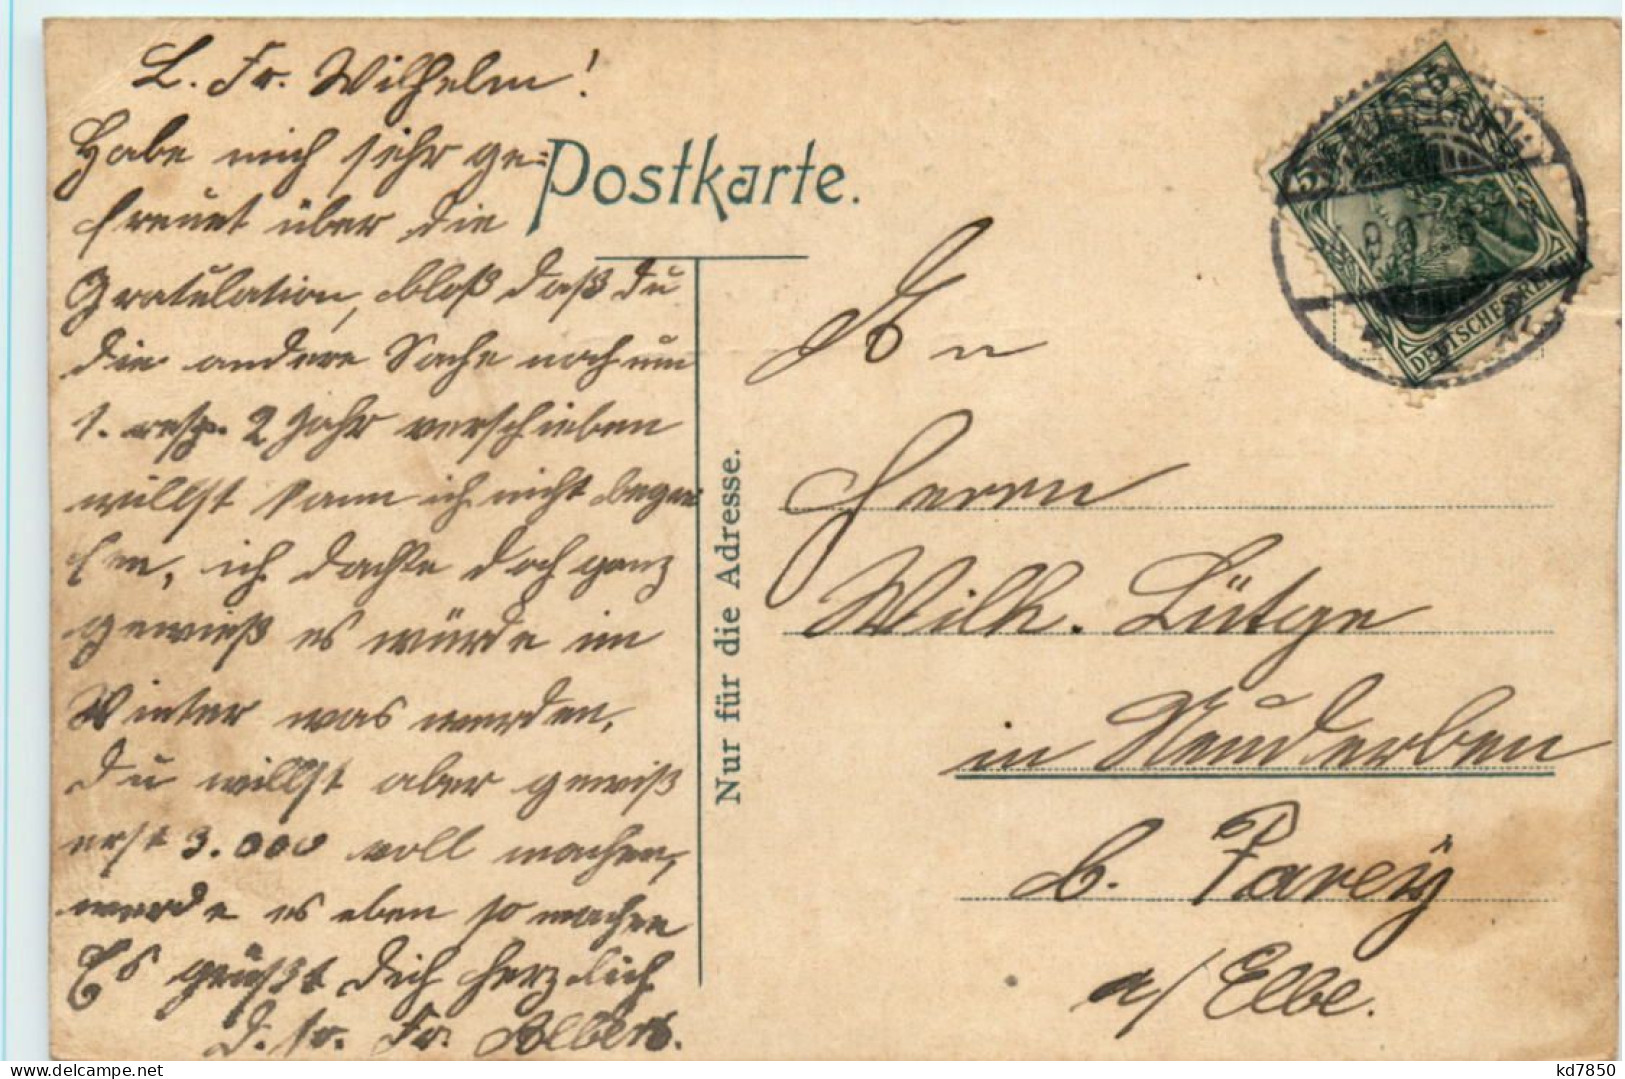 L. Fr. Wilhelm!
Habe mich sehr ge-
freuet über die
Gratulation, bloß daß du
die andere Sache noch um
1. resp. 2 Jahr verschieben
willst kann ich nicht begrei
fen, ich dachte doch ganz
gewieß es würde im
Winter was werden.
Du willst aber gewiß
erst 3.000 voll machen,
werde es eben so machen
Es grüßt Dich herzlich
D. Fr. Albert.
Postkarte.
Nur für die Adresse.
An
Herrn
Wilh. Lütge
in Neuderben
b. Parey
a/ Elbe.
DEUTSCHES REICH
5
kd7850